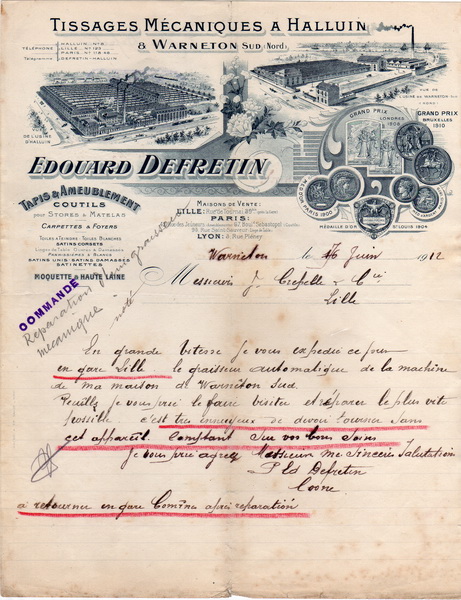 TISSAGES MÉCANIQUES A HALLUIN
& WARNETON SUD (Nord)
TÉLÉPHONE HALLUIN Nº 8
LILLE, Nº 789
Télégramme DEFRETIN-HALLUIN
VUE DE
L'USINE DE WARNETON SUD
(NORD)
VUE
DE L'USINE
D'HALLUIN
GRAND PRIX
LONDRES
1908
GRAND PRIX
BRUXELLES
1910
EDOUARD DEFRETIN
PARIS 1900
MÉDAILLE D'OR
ST LOUIS 1904
TAPIS & AMEUBLEMENT
COUTILS
pour STORES & MATELAS
CARPETTES & FOYERS
TOILES À TEINDRE, TOILES BLANCHES
SATINS CORSETS
SATINS UNIS, SATINS DAMASSÉS
SATINETTES
MOQUETTE & HAUTE LAINE
MAISONS DE VENTE:
LILLE:
PARIS:
LYON: 3, Rue Pléney
COMMANDE
Réparation d'un graisseur
mécanique
note
Warnêton le 26 Juin 1912
Messieurs J. Crepelle & Cie
Lille
En grande vitesse je vous expedie ce jour
en gare Lille le graisseur automatique de la machine
de ma maison de Warnêton Sud.
Veuillez je vous prie le faire visiter et réparer le plus vite
possible c'est tres ennuyeux de devoir tourner sans
cet appareil. Comptant sur vos bons soins
Je vous prie agreer Messieurs me Sinceres Salutations
P Ed Defretin
a retourner en gare Comines apres reparation